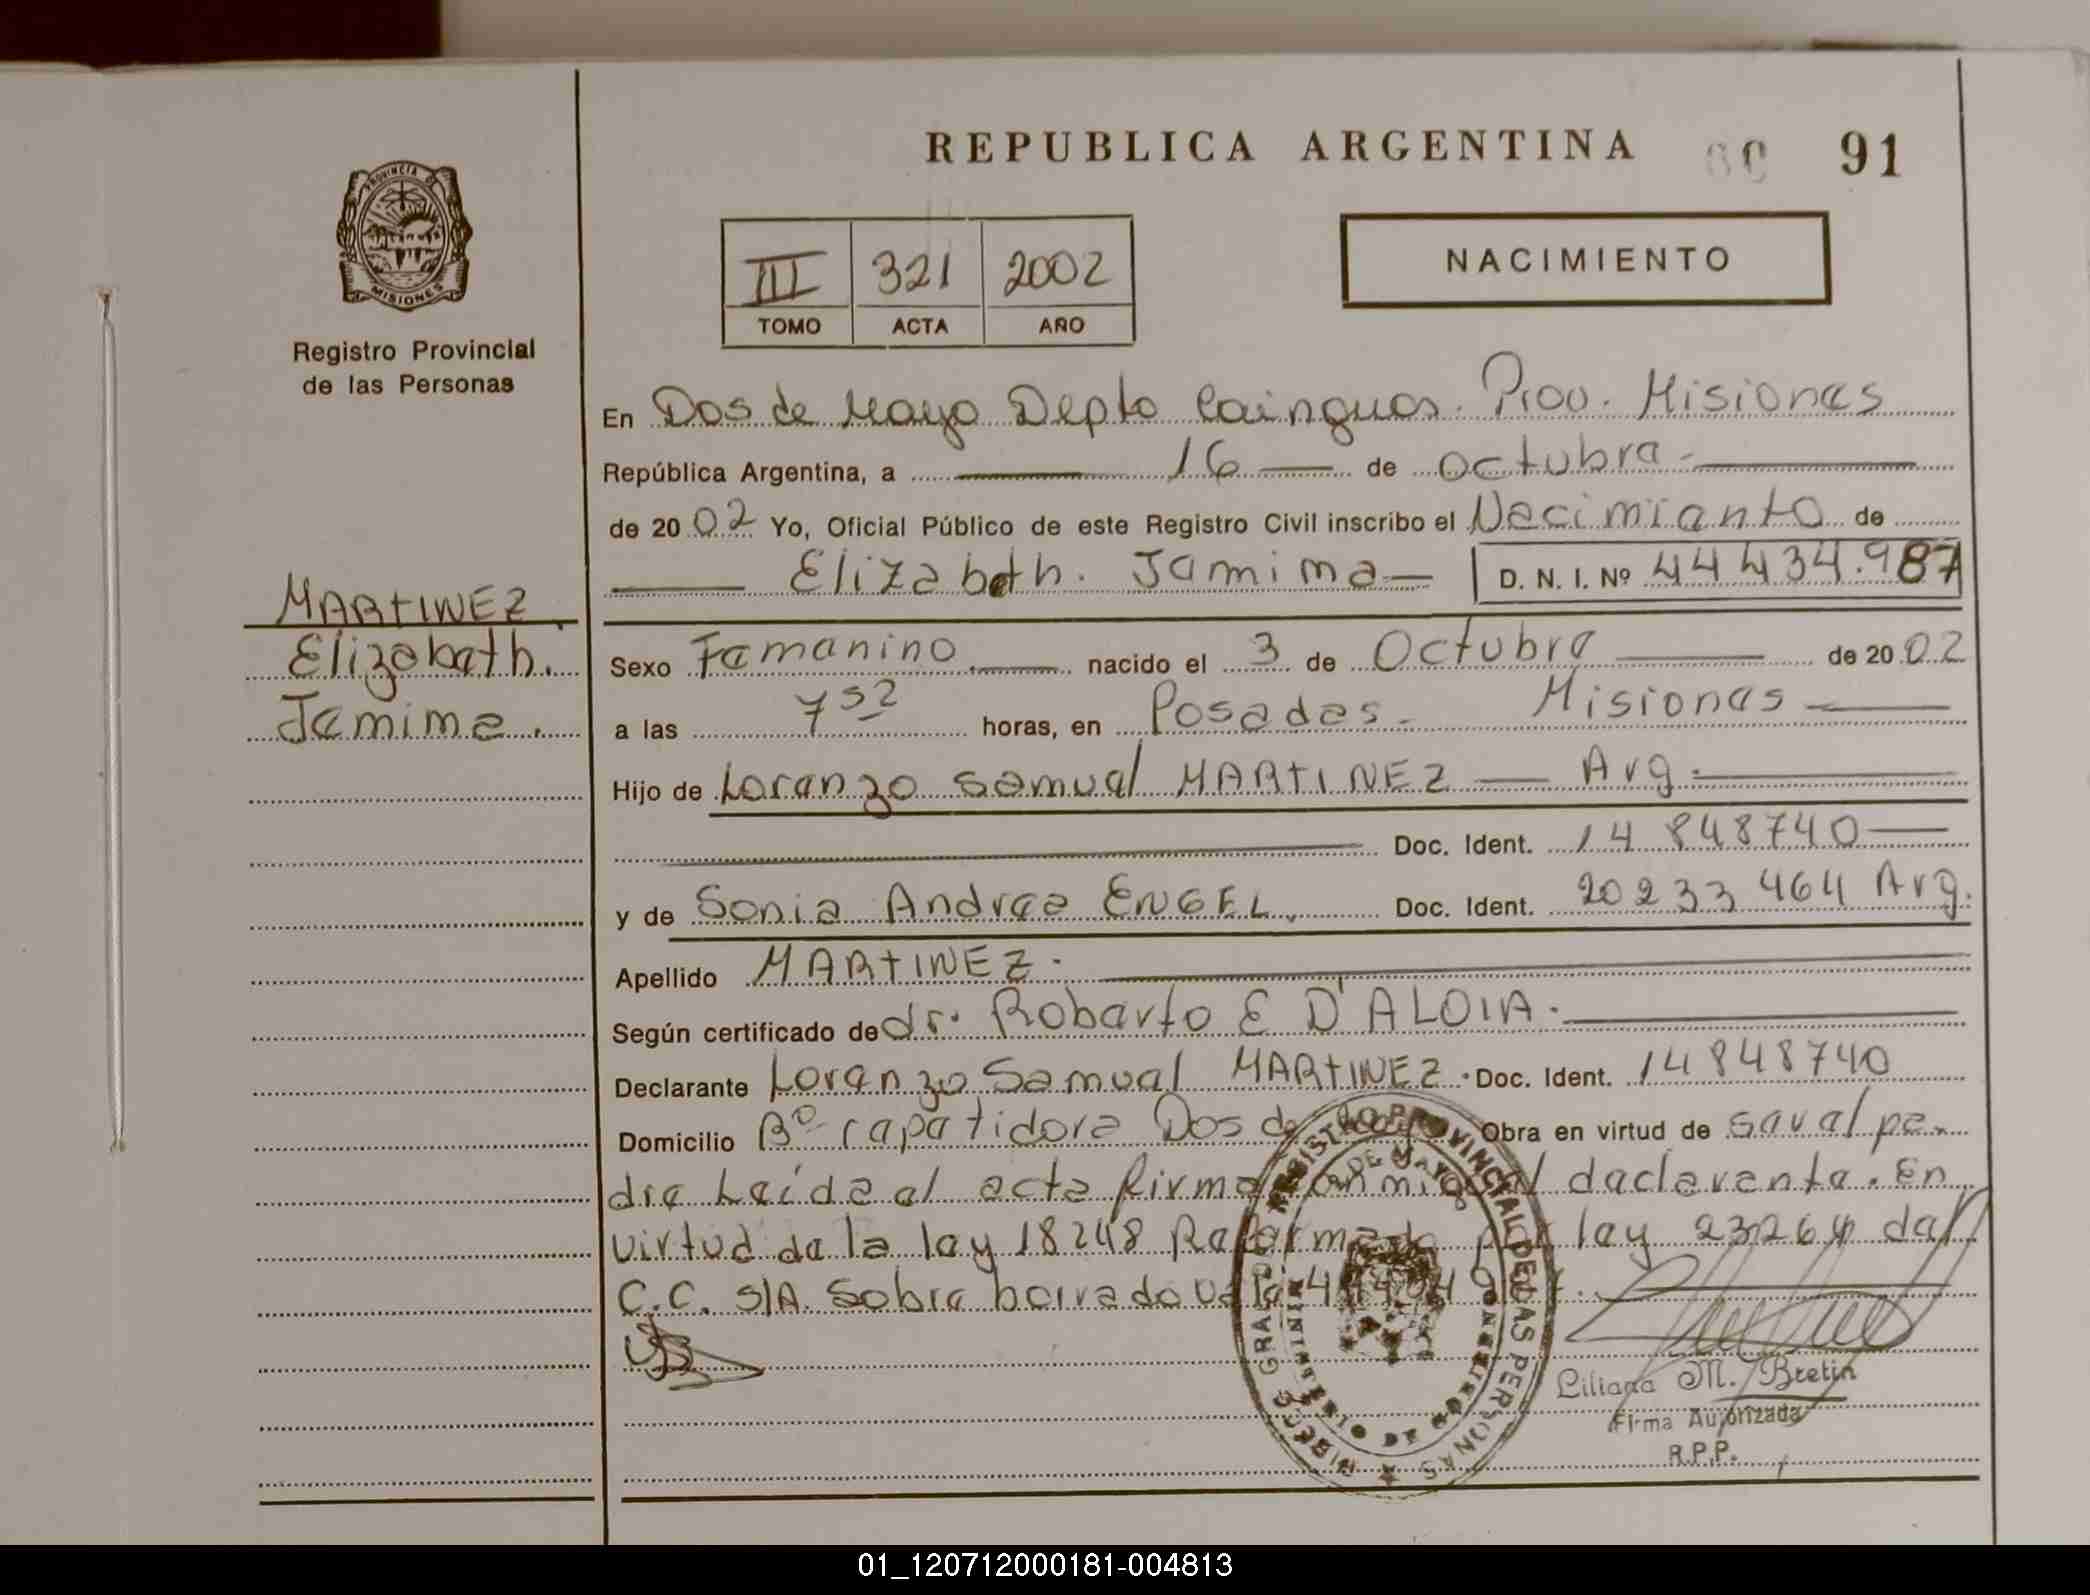 REPUBLICA ARGENTINA 60 91
PROVINCIA DE
MISIONES
Registro Provincial
de las Personas
NACIMIENTO
III 321 2002
TOMO ACTA AÑO
En Dos de Mayo Depto Cainguas. Prov. Misiones
República Argentina, a 16 de octubre
de 2002 Yo, Oficial Público de este Registro Civil inscribo el Necimiento de
Elizabeth. Jemima D. N. I. Nº 44 434.987
MARTINEZ
Elizabeth.
Jemima.
Sexo Femenino nacido el 3 de Octubre de 2002
a las 7 52 horas, en Posadas - Misiones
Hijo de Lorenzo Samuel MARTINEZ Arg.
Doc. Ident. 14 848740
y de Sonia Andrea ENGEL. Doc. Ident. 20233 464 Arg.
Apellido MARTINEZ.
Según certificado de dr. Roberto E D'ALOIA.
Declarante Lorenzo Samuel MARTINEZ. Doc. Ident. 14848740
Domicilio Bº repetidora Dos de Mayo Obra en virtud de ser el pa-
dre Leída el acta firma conmigo el declarante. En
virtud de la ley 18248 Reformada por ley 23264 del
C.C. S/A. Sobre borrado vale
REGISTRO PROVINCIAL DE LAS PERSONAS
DOS DE MAYO
MINISTERIO DE GOBIERNO
Liliana M. Bretin
Firma Autorizada
R.P.P.
01_120712000181-004813